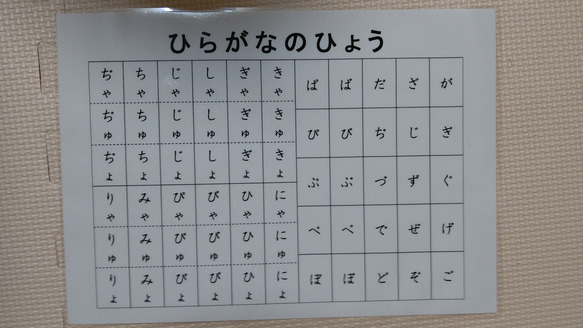 ひらがなのひょう
がぎぐげご
ざじずぜぞ
だぢづでど
ばびぶべぼ
ぱぴぷぺぽ
きゃきゅきょ
ぎゃぎゅぎょ
しゃしゅしょ
じゃじゅじょ
ちゃちゅちょ
ぢゃぢゅぢょ
にゃにゅにょ
ひゃひゅひょ
びゃびゅびょ
ぴゃぴゅぴょ
みゃみゅみょ
りゃりゅりょ